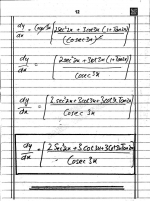 12
dy/dx = (cosec3x) [2sec²2x + 3cot3x (1+tan2x) / (cosec3x)²]
dy/dx = [2sec²2x + 3cot3x (1+tan2x) / cosec3x]
dy/dx = [2sec²2x + 3cot3x + 3cot3x Tan2x / Cosec 3x]
dy/dx = [2Sec²2x + 3cot3x + 3Cot3x Tan2x / Cosec 3x]